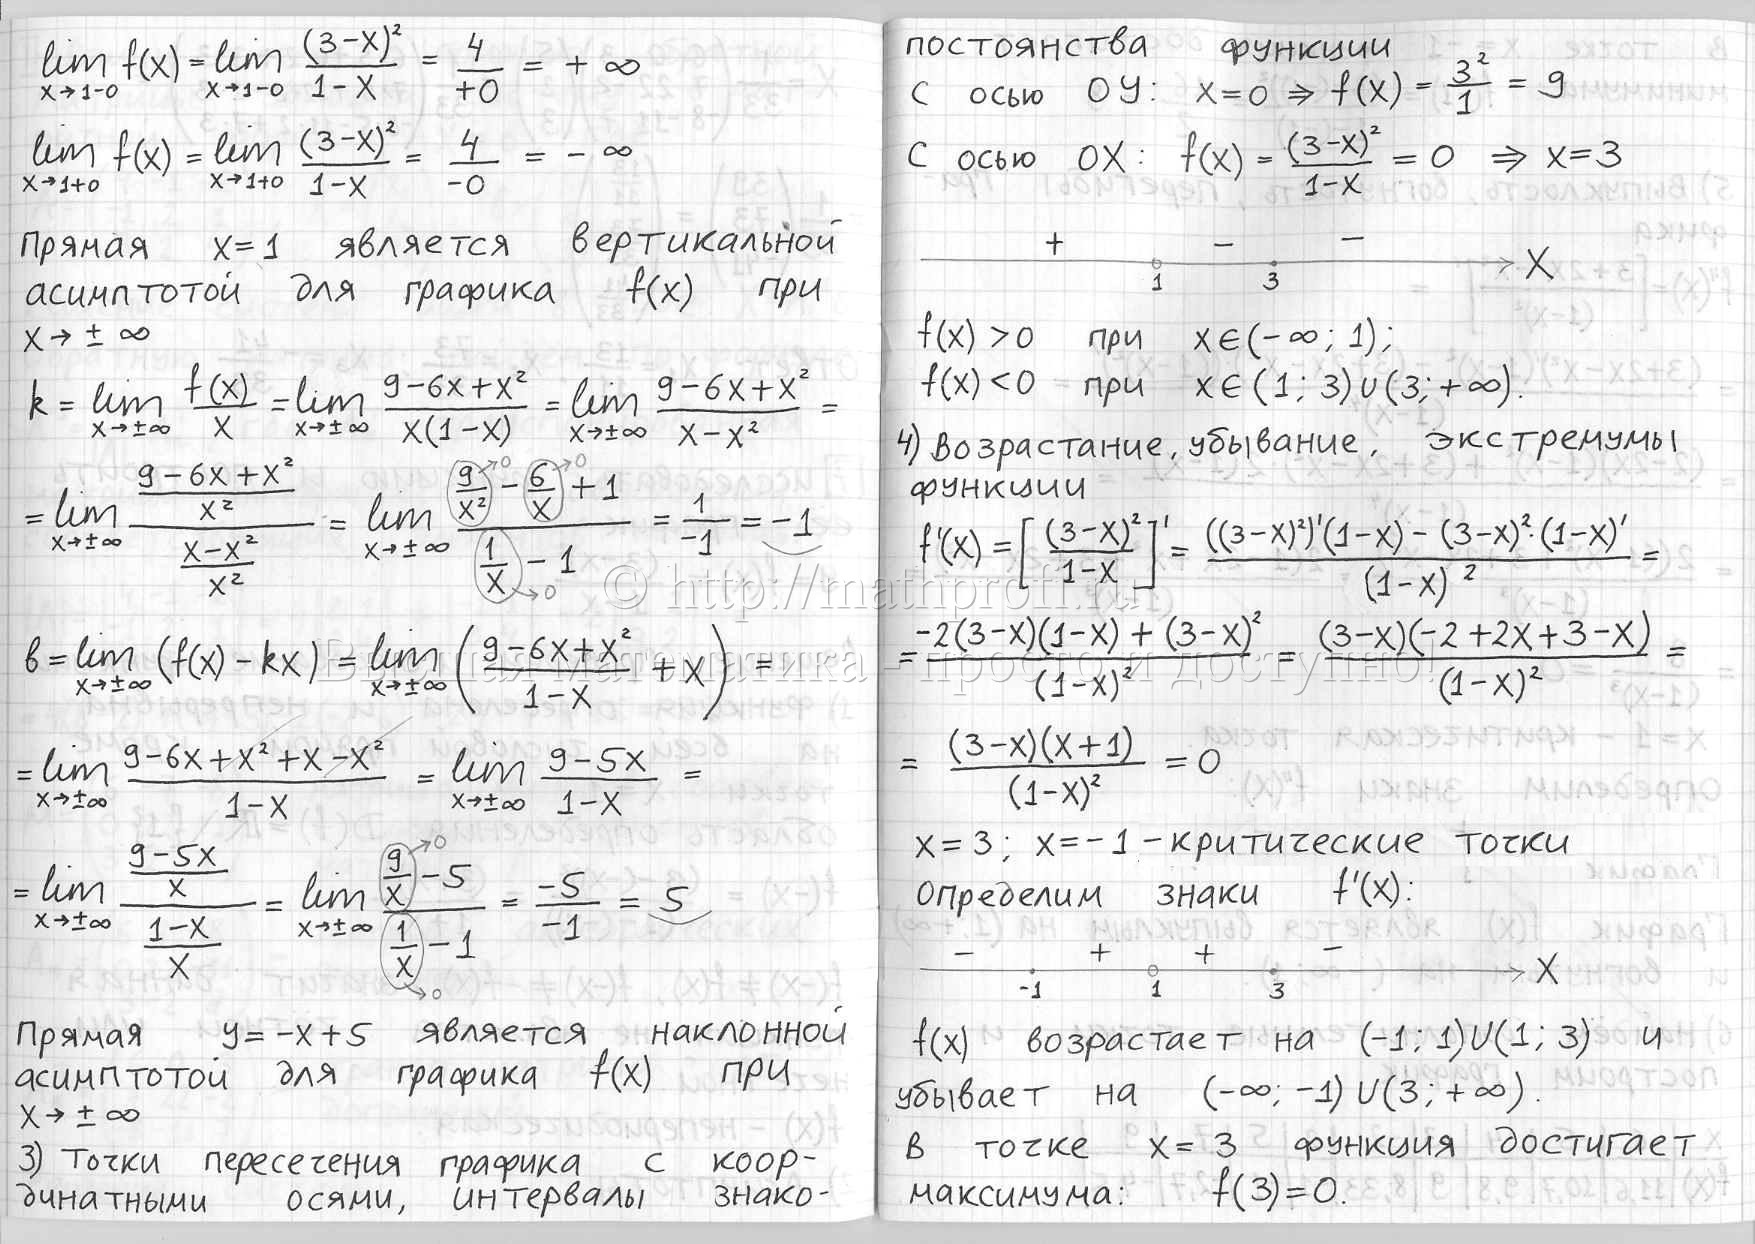 lim_{x→1-0} f(x) = lim_{x→1-0} (3-x)²/(1-x) = 4/+0 = +∞
lim_{x→1+0} f(x) = lim_{x→1+0} (3-x)²/(1-x) = 4/-0 = -∞
Прямая x=1 является вертикальной
асимптотой для графика f(x) при
x→±∞
k = lim_{x→±∞} f(x)/x = lim_{x→±∞} (9-6x+x²)/(x(1-x)) = lim_{x→±∞} (9-6x+x²)/(x-x²) =
= lim_{x→±∞} ((9-6x+x²)/x²)/((x-x²)/x²) = lim_{x→±∞} (9/x²→0 - 6/x→0 + 1)/(1/x→0 - 1) = 1/-1 = -1
b = lim_{x→±∞} (f(x)-kx) = lim_{x→±∞} ((9-6x+x²)/(1-x) + x) =
= lim_{x→±∞} (9-6x+x²+x-x²)/(1-x) = lim_{x→±∞} (9-5x)/(1-x) =
= lim_{x→±∞} ((9-5x)/x)/((1-x)/x) = lim_{x→±∞} (9/x→0 - 5)/(1/x→0 - 1) = -5/-1 = 5
Прямая y=-x+5 является наклонной
асимптотой для графика f(x) при
x→±∞
3) Точки пересечения графика с коор-
динатными осями, интервалы знако-
постоянства функции
С осью OY: x=0 ⇒ f(x) = 3²/1 = 9
С осью OX: f(x) = (3-x)²/(1-x) = 0 ⇒ x=3
+ - - X
1 3
f(x)>0 при x∈(-∞; 1);
f(x)<0 при x∈(1; 3)∪(3; +∞).
4) Возрастание, убывание, экстремумы
функции
f'(x) = [(3-x)²/(1-x)]' = (((3-x)²)'(1-x) - (3-x)²·(1-x)')/(1-x)² =
= (-2(3-x)(1-x) + (3-x)²)/(1-x)² = ((3-x)(-2+2x+3-x))/(1-x)² =
= ((3-x)(x+1))/(1-x)² = 0
x=3; x=-1 - критические точки
Определим знаки f'(x):
- + + - X
-1 1 3
f(x) возрастает на (-1; 1)∪(1; 3) и
убывает на (-∞; -1)∪(3; +∞).
В точке x=3 функция достигает
максимума: f(3)=0.
© http://mathprofi.ru
Высшая математика – просто и доступно!